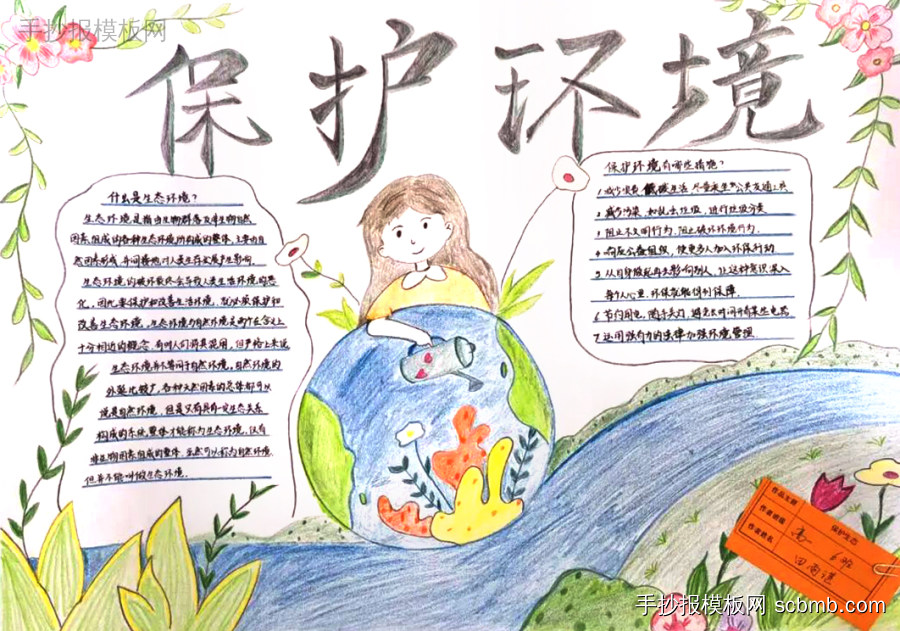 手抄报模板网
保护环境
什么是生态环境?
生态环境是指由生物群落及非生物自然
因素组成的各种生态系统所构成的整体,主要由自
然因素形成,并间接地对人类生存发展产生影响.
生态环境的破坏最终会导致人类生活环境的恶
化,因此要保护和改善生活环境,就必须保护和
改善生态环境.生态环境与自然环境是两个在含义上
十分相近的概念,有时人们将其混用,但严格上来说
生态环境并不等同于自然环境,自然环境的
外延比较广,各种天然因素的总体都可以
说是自然环境,但是只有具有一定生态关系
构成的系统整体才能称为生态环境.仅有
非生物因素组成的整体,虽然可以称为自然环境
但并不能叫做生态环境.
保护环境有哪些措施?
1.减少浪费 低碳生活 尽量乘坐公共交通工具
2.减少污染,如乱丢垃圾,进行垃圾分类
3.阻止不文明行为,阻止破坏环境行为.
4.向居公益组织,使更多人加入环保行动
5.从自身做起再去影响别人,让这种意识深入
每个人心里,环保就能得到保障.
6.节约用电,随手关灯,避免长时间开着某些电器
7.运用强有力的法律加强环境管理.
作品主题 保护生态
作者班级 高一 6班
作者姓名
手抄报模板网 scbmb.com